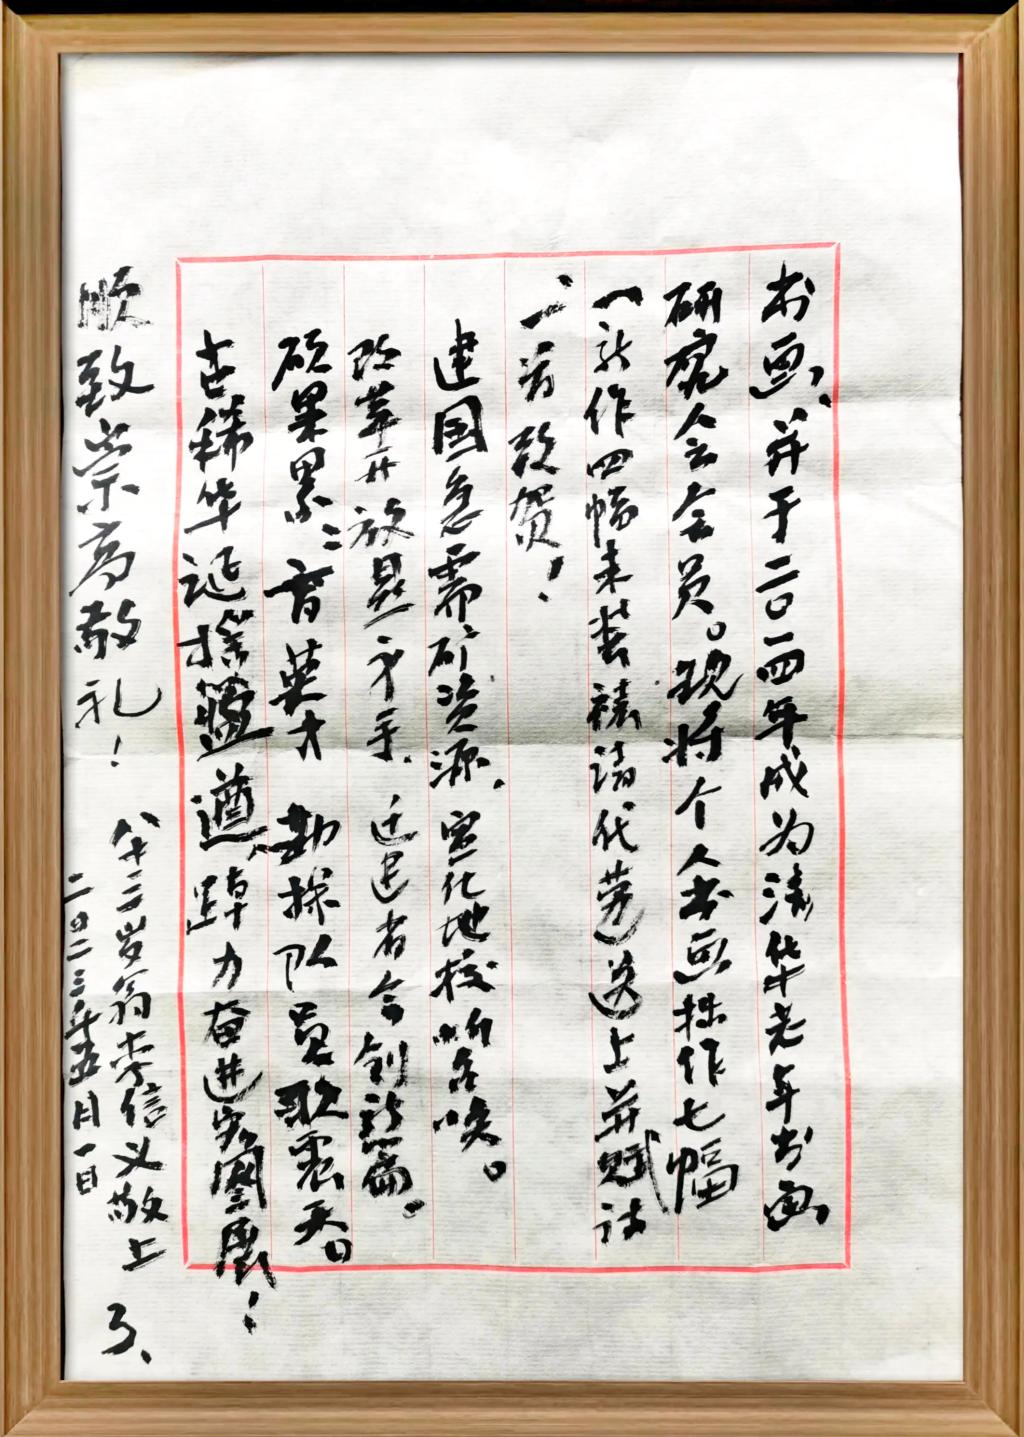 书画，并于二〇一四年成为清华老年书画
研究会会员。现将个人书画拙作七幅
（新作四幅未装裱）请代劳送上并赋诗
一首致贺！
建国急需矿资源，宣化地校响召唤。
改革开放显身手，迁退者合创新篇。
硕果累累育英才 勘探队员歌震天。
古稀华诞摆盛道，踔力奋进宏图展！
顺致崇高敬礼！
八十二岁翁李信义敬上
二〇二三年五月一日
3、